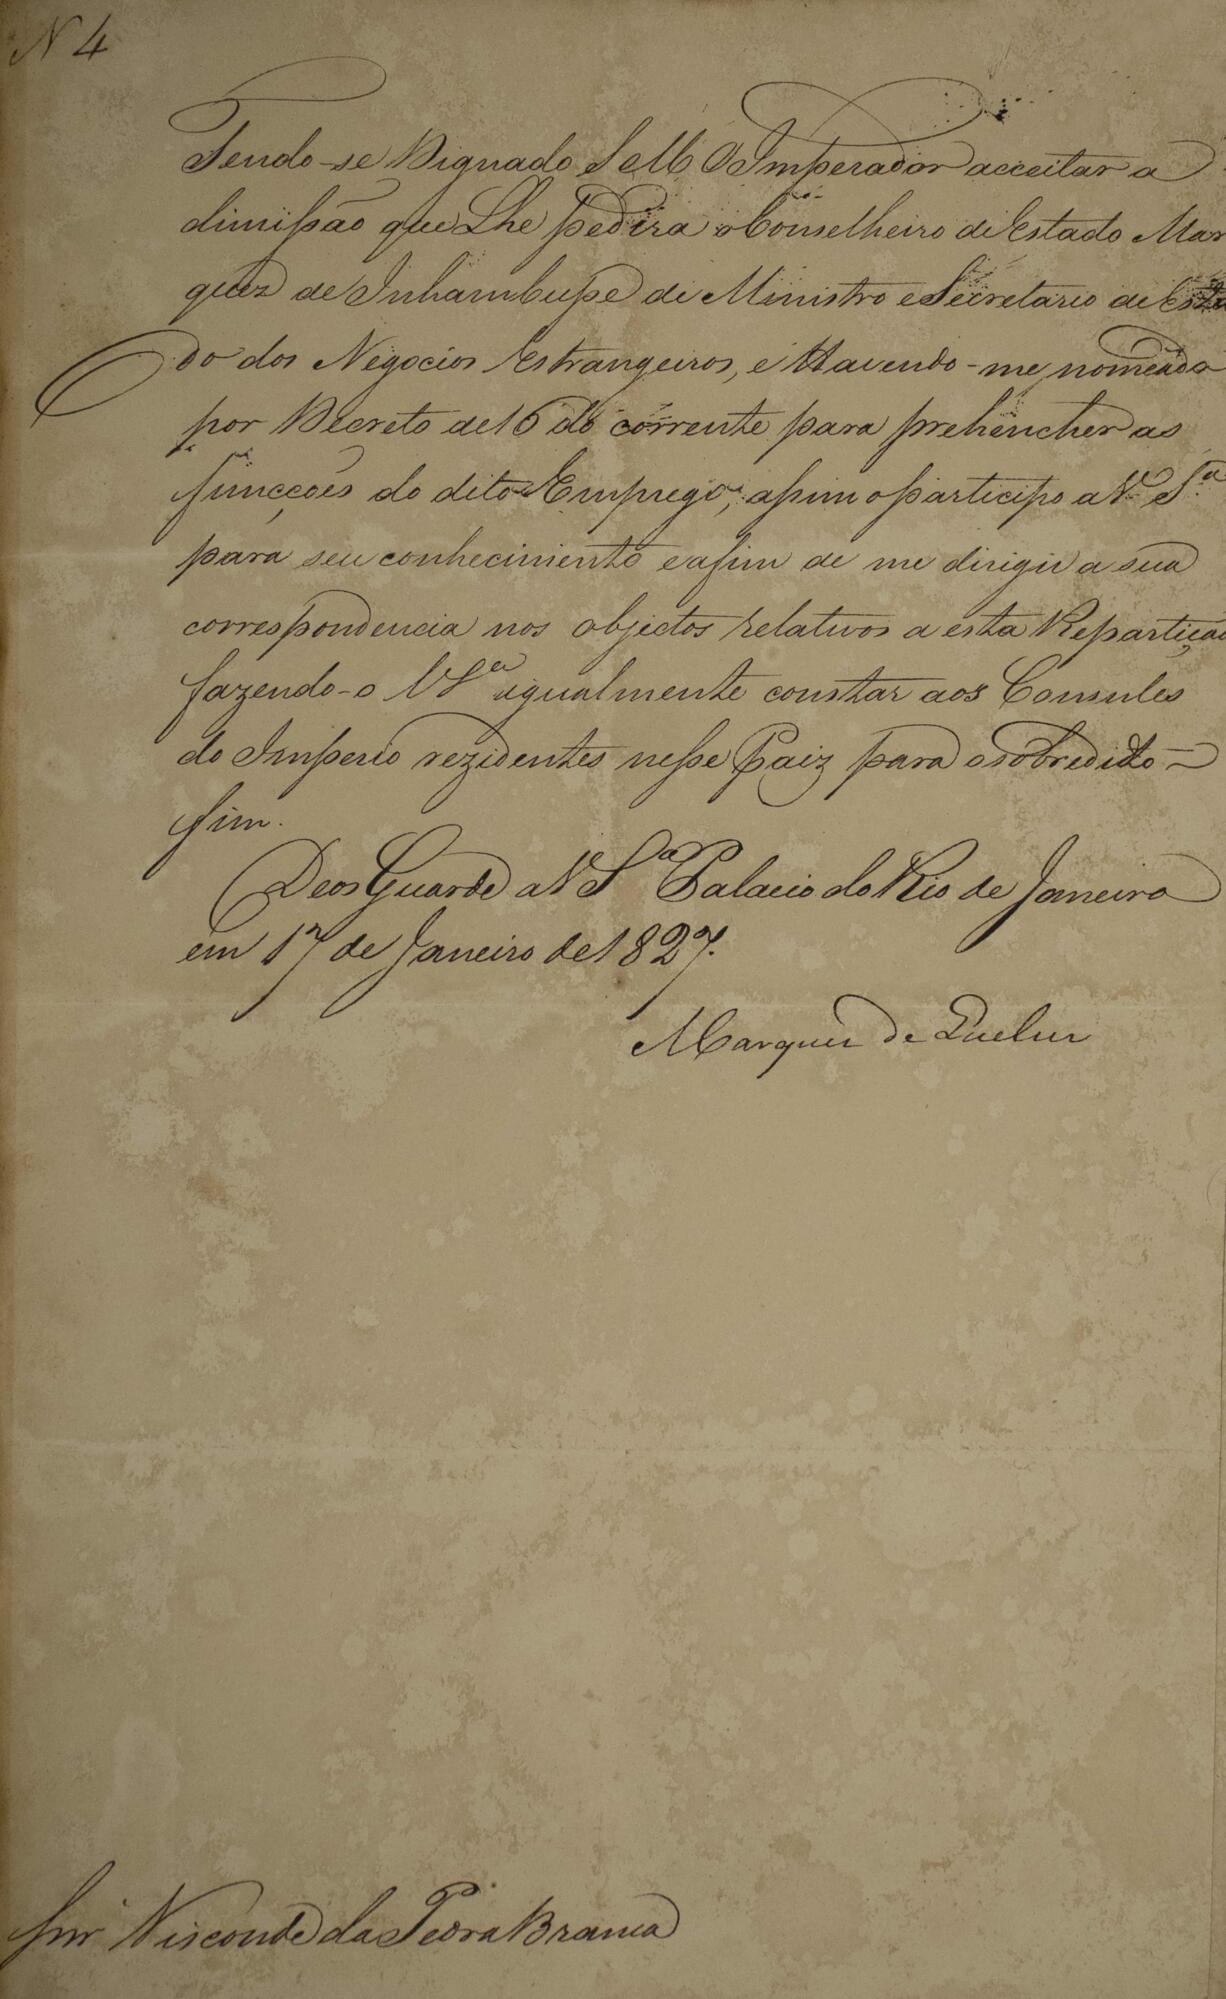 N 4
Tendo-se Dignado S M O Imperador acceitar a
dimissão que Lhe pedira o Conselheiro de Estado Mar
quez de Inhambupe de Ministro e Secretario de Esta
do dos Negocios Estrangeiros, e Havendo-me nomeado
por Decreto de 16 do corrente para prehencher as
funcções do dito Emprego, assim o participo a V. S.ª
para seu conhecimento e afim de me dirigir a sua
correspondencia nos objectos relativos a esta Repartição
fazendo-o V S.ª igualmente constar aos Consules
do Imperio rezidentes nesse Paiz para o sobredito
fim.
Deos Guarde a V S.ª Palacio do Rio de Janeiro
em 17 de Janeiro de 1827.
Marquez de Queluz
Snr Visconde da Pedra Branca